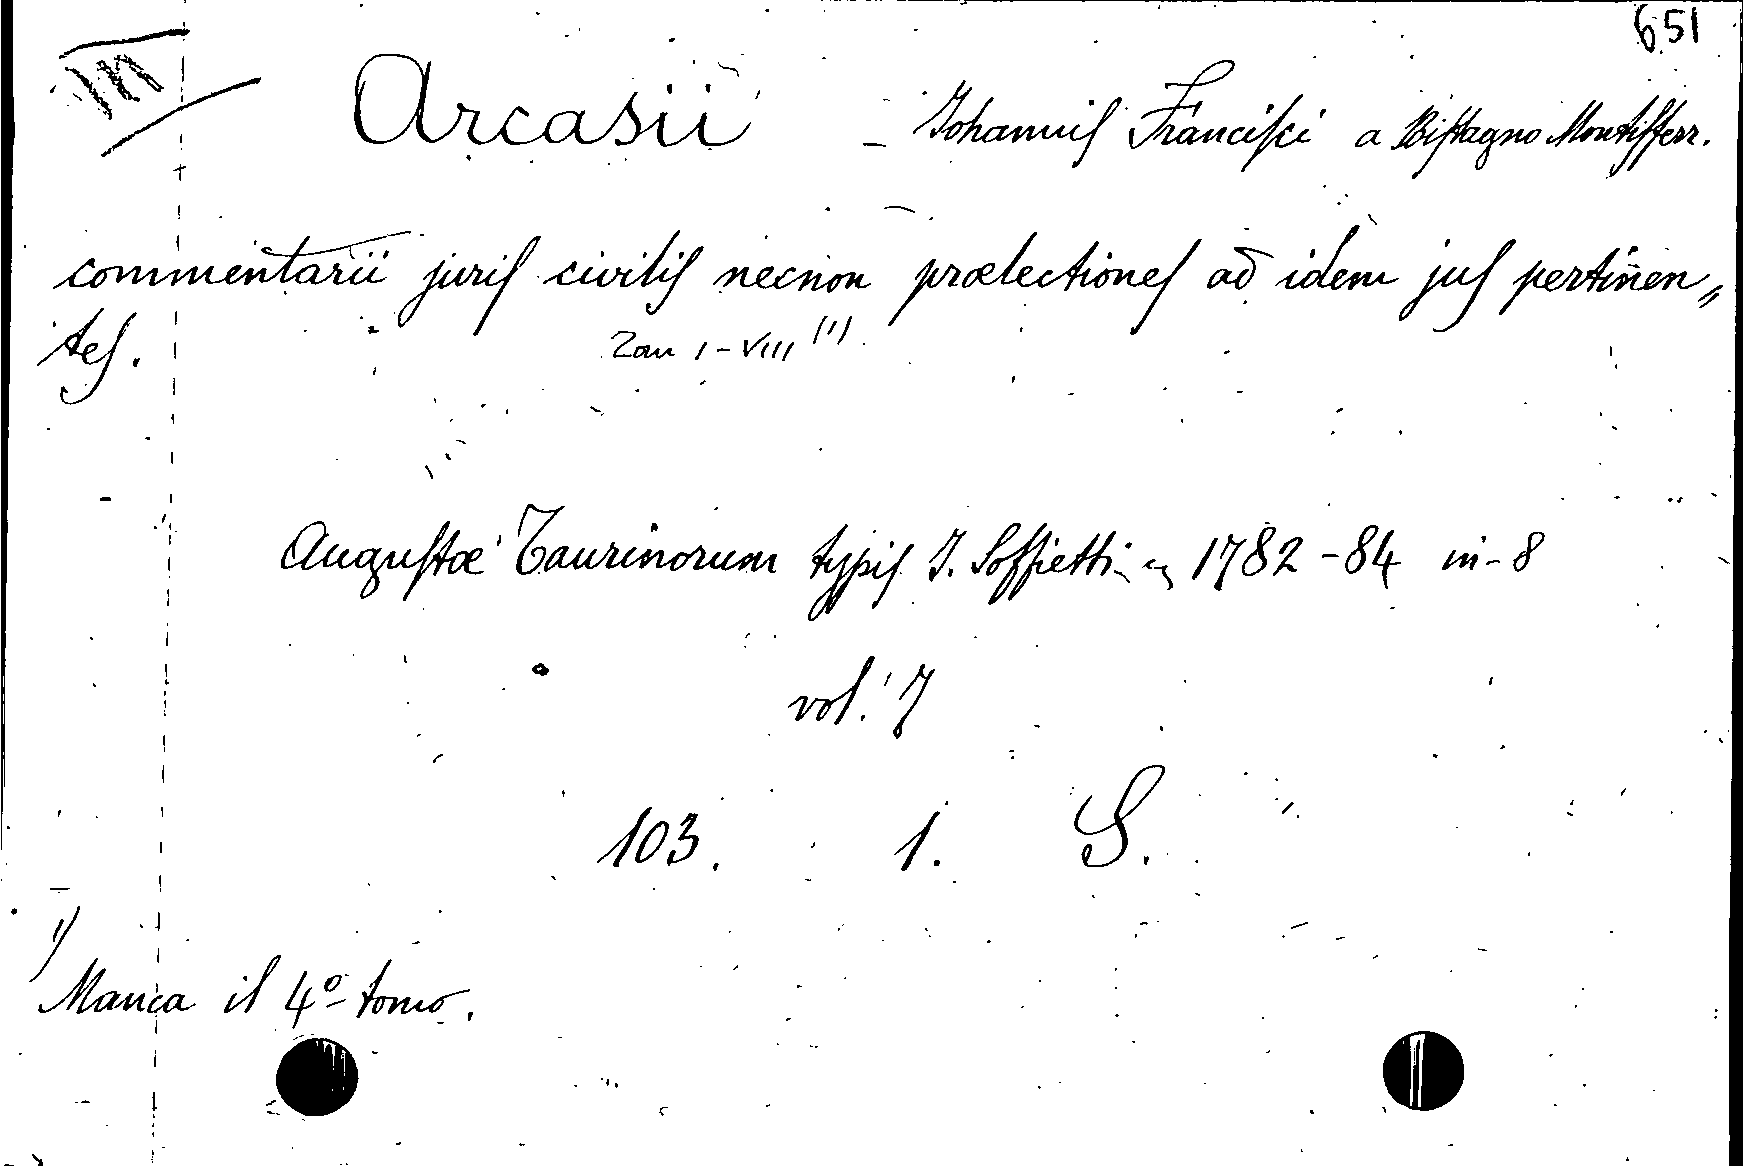 651
Arcasii - Johannis Francisci a Bistagno Montisferr.
commentarii juris civilis necnon prælectiones ad idem jus pertinen„
tes.
Tom I-VIII (1)
Augustæ Taurinorum typis J. Soffietti 1782-84 in-8
vol. 7
103. 1. S.
1)
Manca il 4º tomo.